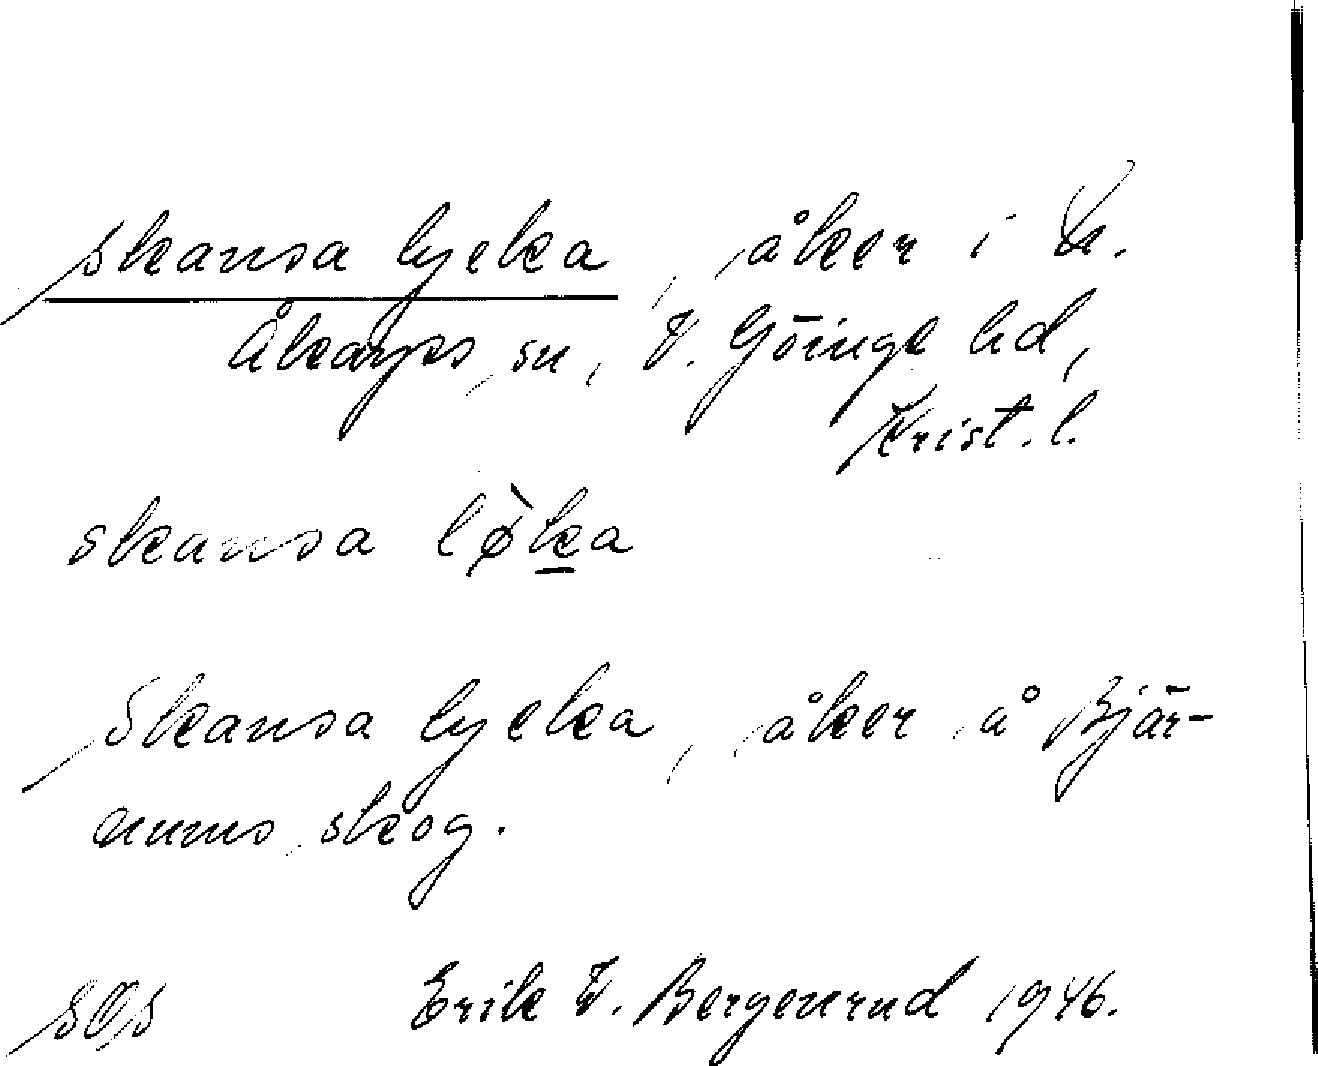 Skansa lycka, åker i N.
Åkarps sn, V. Göinge hd,
Krist. l.
skansa lø̀ka
Skansa lycka, åker å Bjär-
nums skog.
SOS Erik V. Bergenrud 1946.